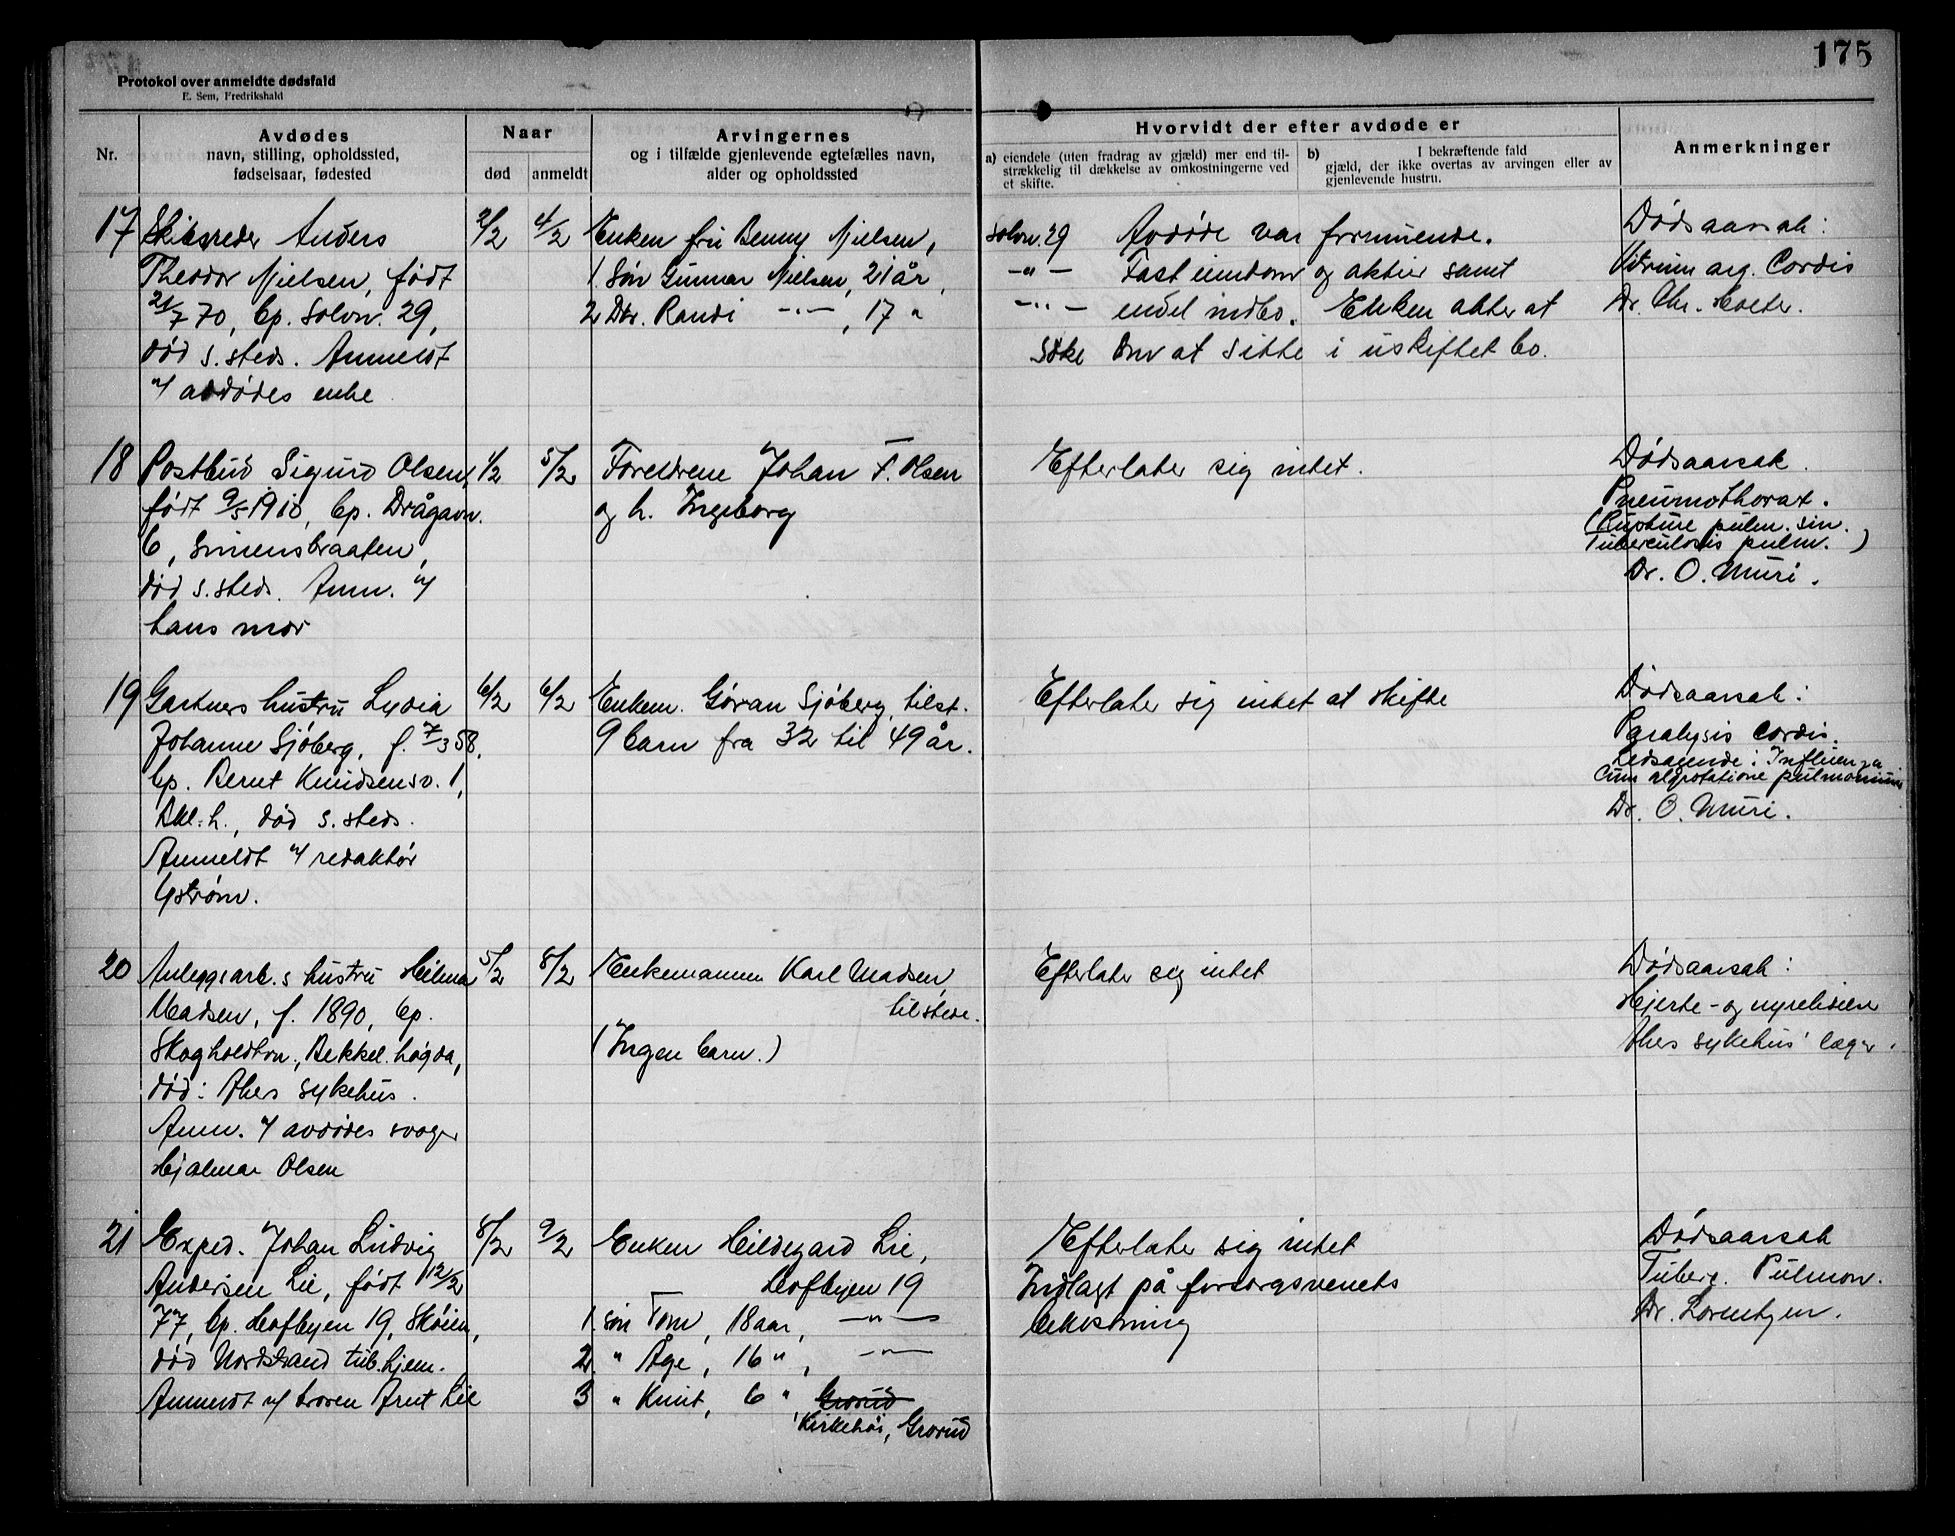 175
Protokol over anmeldte dødsfald
E. Sem, Fredrikshald
Nr.
Avdødes
navn, stilling, opholdssted,
fødselsaar, fødested
Naar
død
anmeldt
Arvingernes
og i tilfælde gjenlevende egtefælles navn,
alder og opholdssted
Hvorvidt der efter avdøde er
a) eiendele (uten fradrag av gjæld) mer end til-
strækkelig til dækkelse av omkostningerne ved
et skifte.
b) I bekræftende fald
gjæld, der ikke overtas av arvingen eller av
gjenlevende hustru.
Anmerkninger
17
Skibsreder Anders
Theodor Nielsen, født
21/7 70, bp. Solvn. 29,
død s. steds. Anmeldt
v/ avdødes enke
2/2
4/2
Enken fru Benny Nielsen,
1 Søn Gunnar Nielsen, 21 år,
2 Dtr. Randi -"-, 17 "
Solvn. 29
-"-
-"-
Avdøde var formuende.
Fast eiendom og aktier samt
endel indbo. Enken akter at
søke om at sitte i uskiftet bo.
Dødsaarsak:
Vitium org. Cordis
Dr. Chr.
18
Postbud Sigurd Olsen,
født 9/5 1910, bp. Drågavn.
6, Simensbraaten,
død s. steds. Anm. v/
hans mor
1/2
5/2
Foreldrene Johan F. Olsen
og h. Ingeborg
Efterlater sig intet.
Dødsaarsak.
Pneumothorax.
(Rupture pulm. sin.
Tuberculosis pulm.)
Dr. O. Muri.
19
Gartners hustru Lydia
Johanne Sjøberg, f. 7/3 58,
bp. Bernt Knudsensv. 1,
Bkl.h., død s. steds.
Anmeldt v/ redaktør
Ystrøm.
6/2
6/2
Enkem. Gøran Sjøberg, tilst.
9 barn fra 32 til 49 år.
Efterlater sig intet at skifte
Dødsaarsak:
Paralysis Cordis.
Ledsagende: Influenza
cum pulmonum
Dr. O. Muri.
20
Anleggsarb.s hustru Hilma
Madsen, f. 1890, bp.
Skogholdtvn., Bekkel.høgda,
død: Akers sykehus.
Anm. v/ avdødes svoger
Hjalmar Olsen
5/2
8/2
Enkemannen Karl Madsen,
tilstede.
(Ingen barn.)
Efterlater sig intet
Dødsaarsak:
Hjerte- og nyrelidelse
Akers sykehus' læger.
21
Exped. Johan Ludvig
Andersen Lie, født 12/2
77, bp. Hofbyen 19, Skøien,
død Nordstrand tub.hjem.
Anmeldt v/ broren Arnt Lie
8/2
9/2
Enken Hildegard Lie,
Hofbyen 19
1. søn Tom, 18 aar, -"-
2. " Åge, 16 ", -"-
3 " Knut, 6 " Grorud
Kirkehøi, Grorud
Efterlater sig intet
Indlagt på forsorgsvesenets
bekostning
Dødsaarsak
Tuberc. Pulmon.
Dr. Lorentzen.